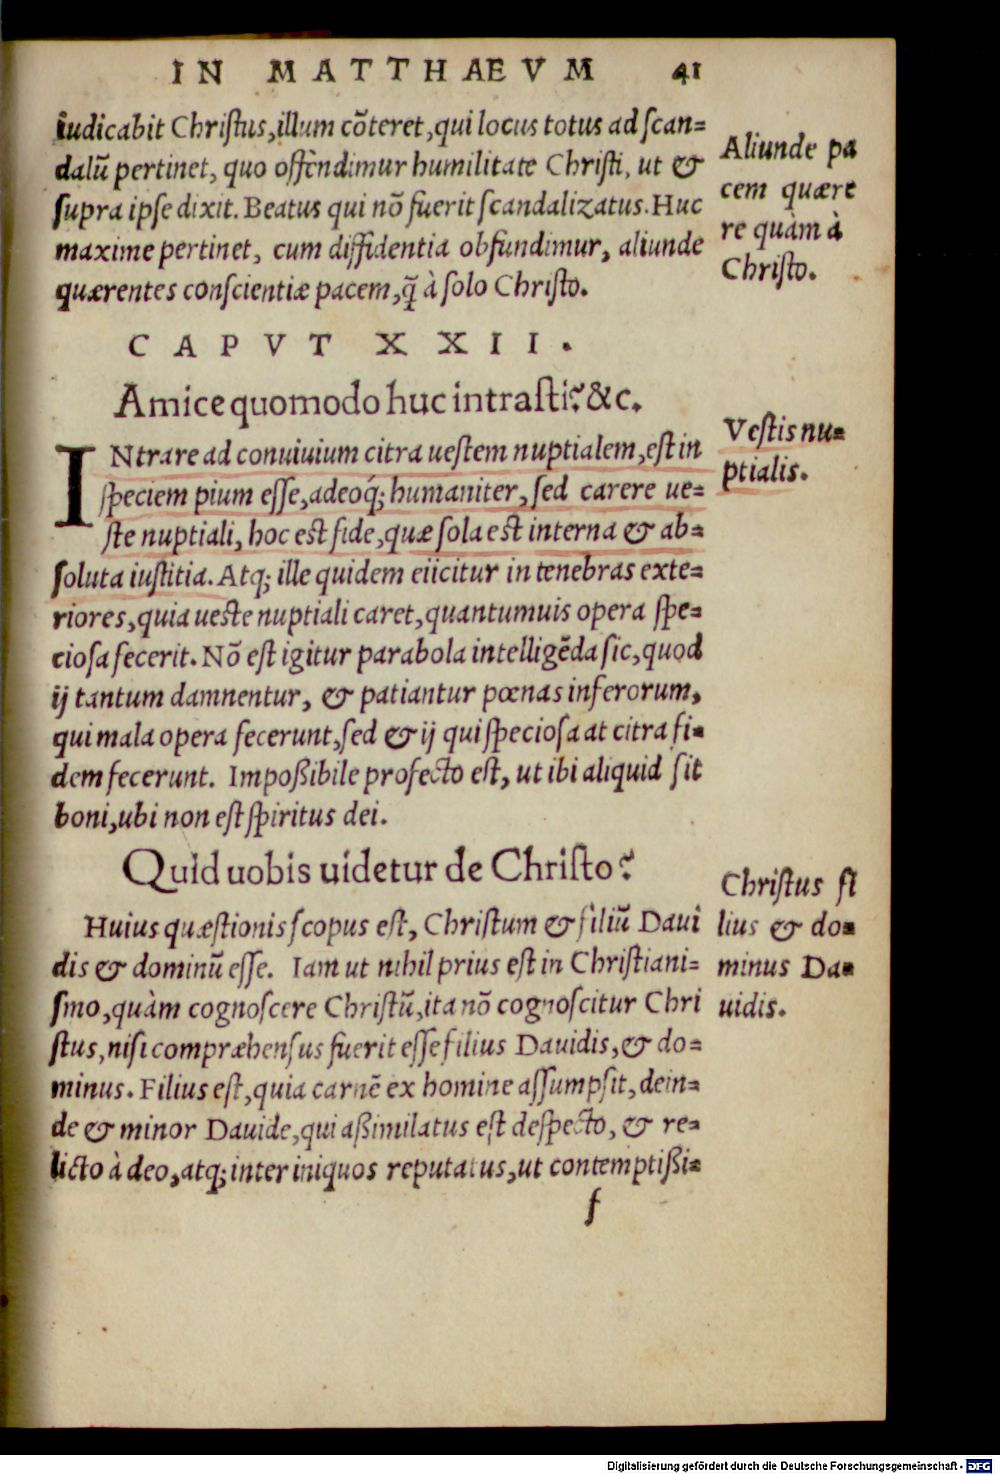 IN MATTHAEVM 41
iudicabit Christus, illum cõteret, qui locus totus ad scan=
dalũ pertinet, quo offendimur humilitate Christi, ut &
supra ipse dixit. Beatus qui nõ fuerit scandalizatus. Huc
maxime pertinet, cum diffidentia obfundimur, aliunde
quærentes conscientiæ pacem, q̃ à solo Christo.
Aliunde pa
cem quære
re quàm à
Christo.
CAPVT XXII.
Amice quomodo huc intrasti? &c.
INtrare ad conuiuium citra uestem nuptialem, est in
speciem pium esse, adeoq́; humaniter, sed carere ue=
ste nuptiali, hoc est fide, quæ sola est interna & ab=
soluta iustitia. Atq; ille quidem eiicitur in tenebras exte=
riores, quia ueste nuptiali caret, quantumuis opera spe=
ciosa fecerit. Nõ est igitur parabola intelligẽda sic, quod
ij tantum damnentur, & patiantur pœnas inferorum,
qui mala opera fecerunt, sed & ij qui speciosa at citra fi=
dem fecerunt. Impoßibile profecto est, ut ibi aliquid sit
boni, ubi non est spiritus dei.
Vestis nu=
ptialis.
Quid uobis uidetur de Christo?
Huius quæstionis scopus est, Christum & filiũ Daui
dis & dominũ esse. Iam ut nihil prius est in Christiani=
smo, quàm cognoscere Christũ, ita nõ cognoscitur Chri
stus, nisi compræhensus fuerit esse filius Dauidis, & do=
minus. Filius est, quia carnẽ ex homine assumpsit, dein=
de & minor Dauide, qui aßimilatus est despecto, & re=
licto à deo, atq; inter iniquos reputatus, ut contemptißi=
Christus fi
lius & do=
minus Da=
uidis.
f
Digitalisierung gefördert durch die Deutsche Forschungsgemeinschaft - DFG